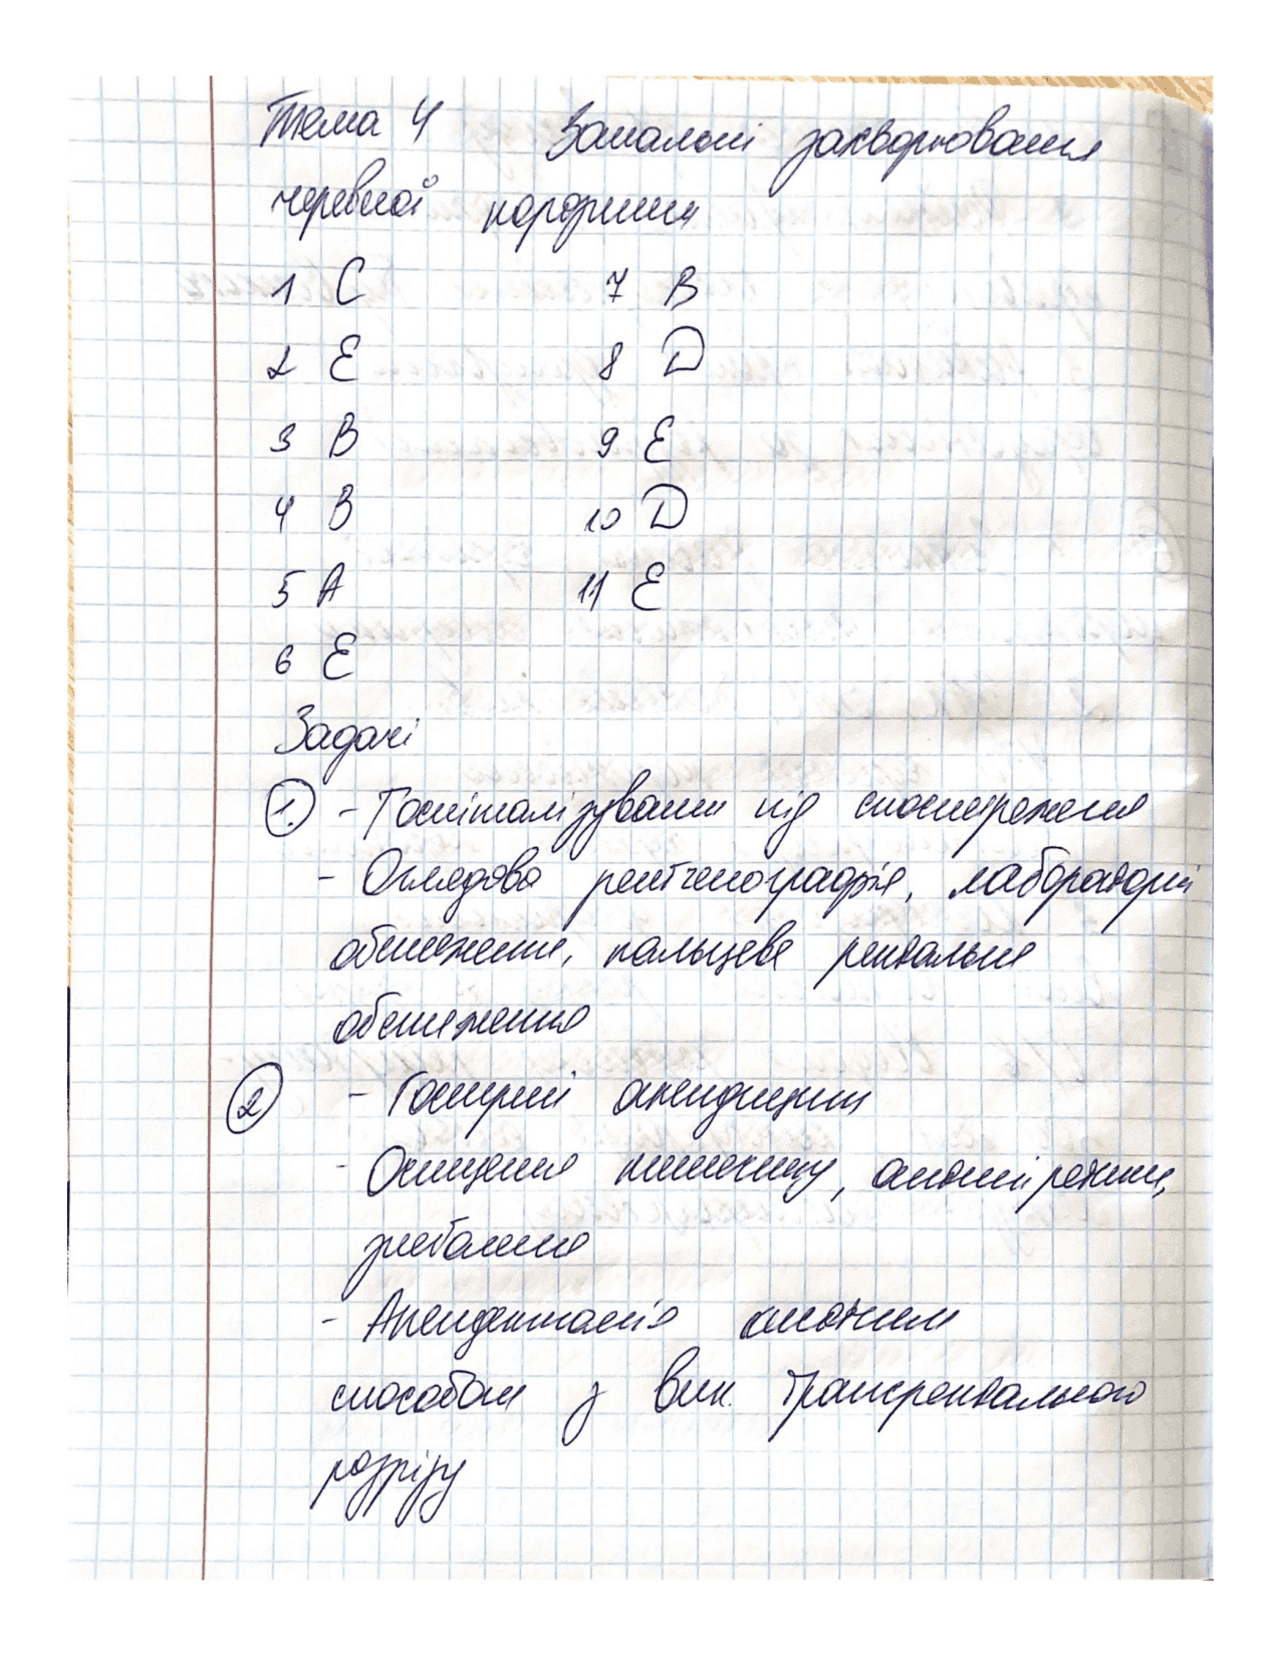 Тема 4 Запальні захворювання
черевної порожнини
1 C 7 B
2 E 8 D
3 B 9 E
4 B 10 D
5 A 11 E
6 E
Задачі
1. - Госпіталізувати під спостереження
- Оглядова рентгенографія, лабораторні
обстеження, пальцеве ректальне
обстеження
2 - Гострий апендицит
- Очищення кишечнику, антибіотики,
знеболення
- Апендектомія
способом з вик. трансректального
розрізу